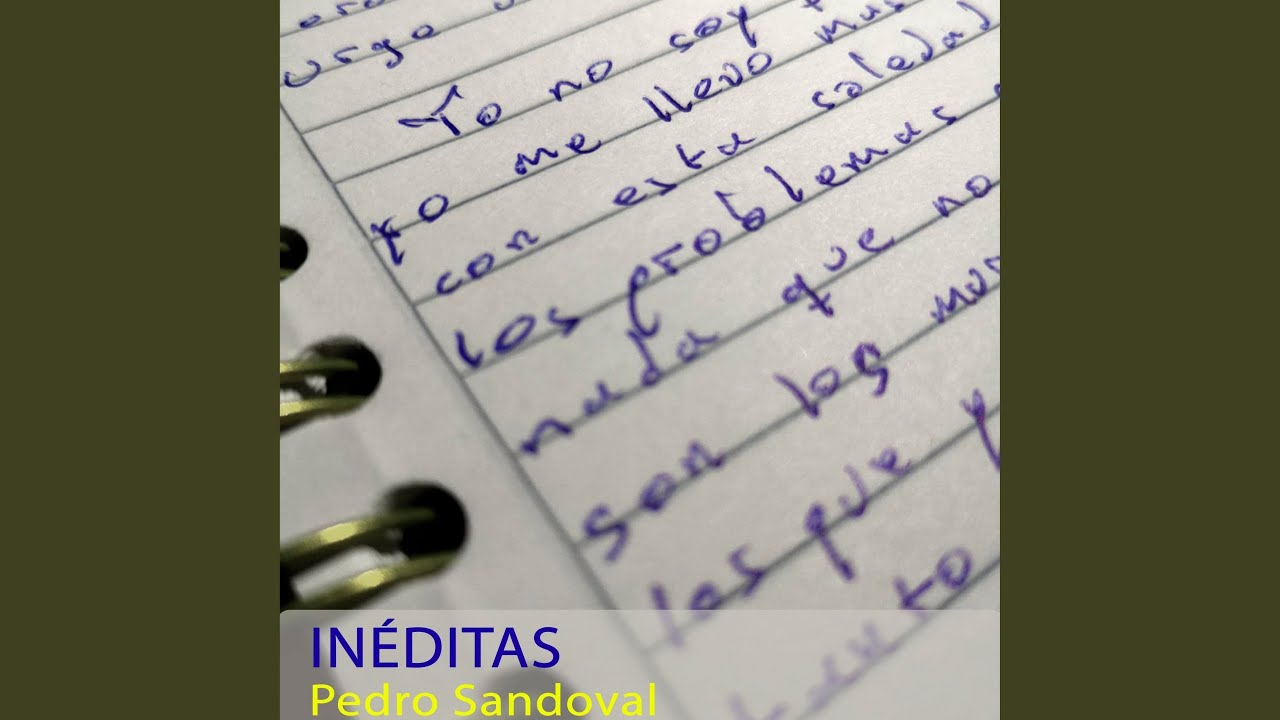 urgo
Yo no soy
yo me llevo mus
con esta soledad
los problemas
nada que no
son los mor
las que p
INÉDITAS
Pedro Sandoval